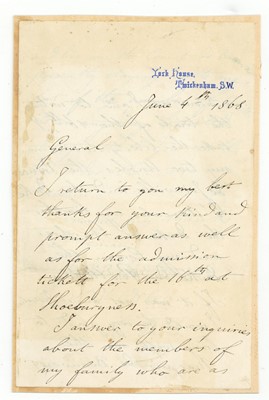 York House,
Twickenham. S.W.
June 4th 1868
General
I return to you my best
thanks for your kind and
prompt answer as well
as for the admission
tickets for the 16th at
Shoeburyness.
I answer to your inquiries
about the members of
my family who are as